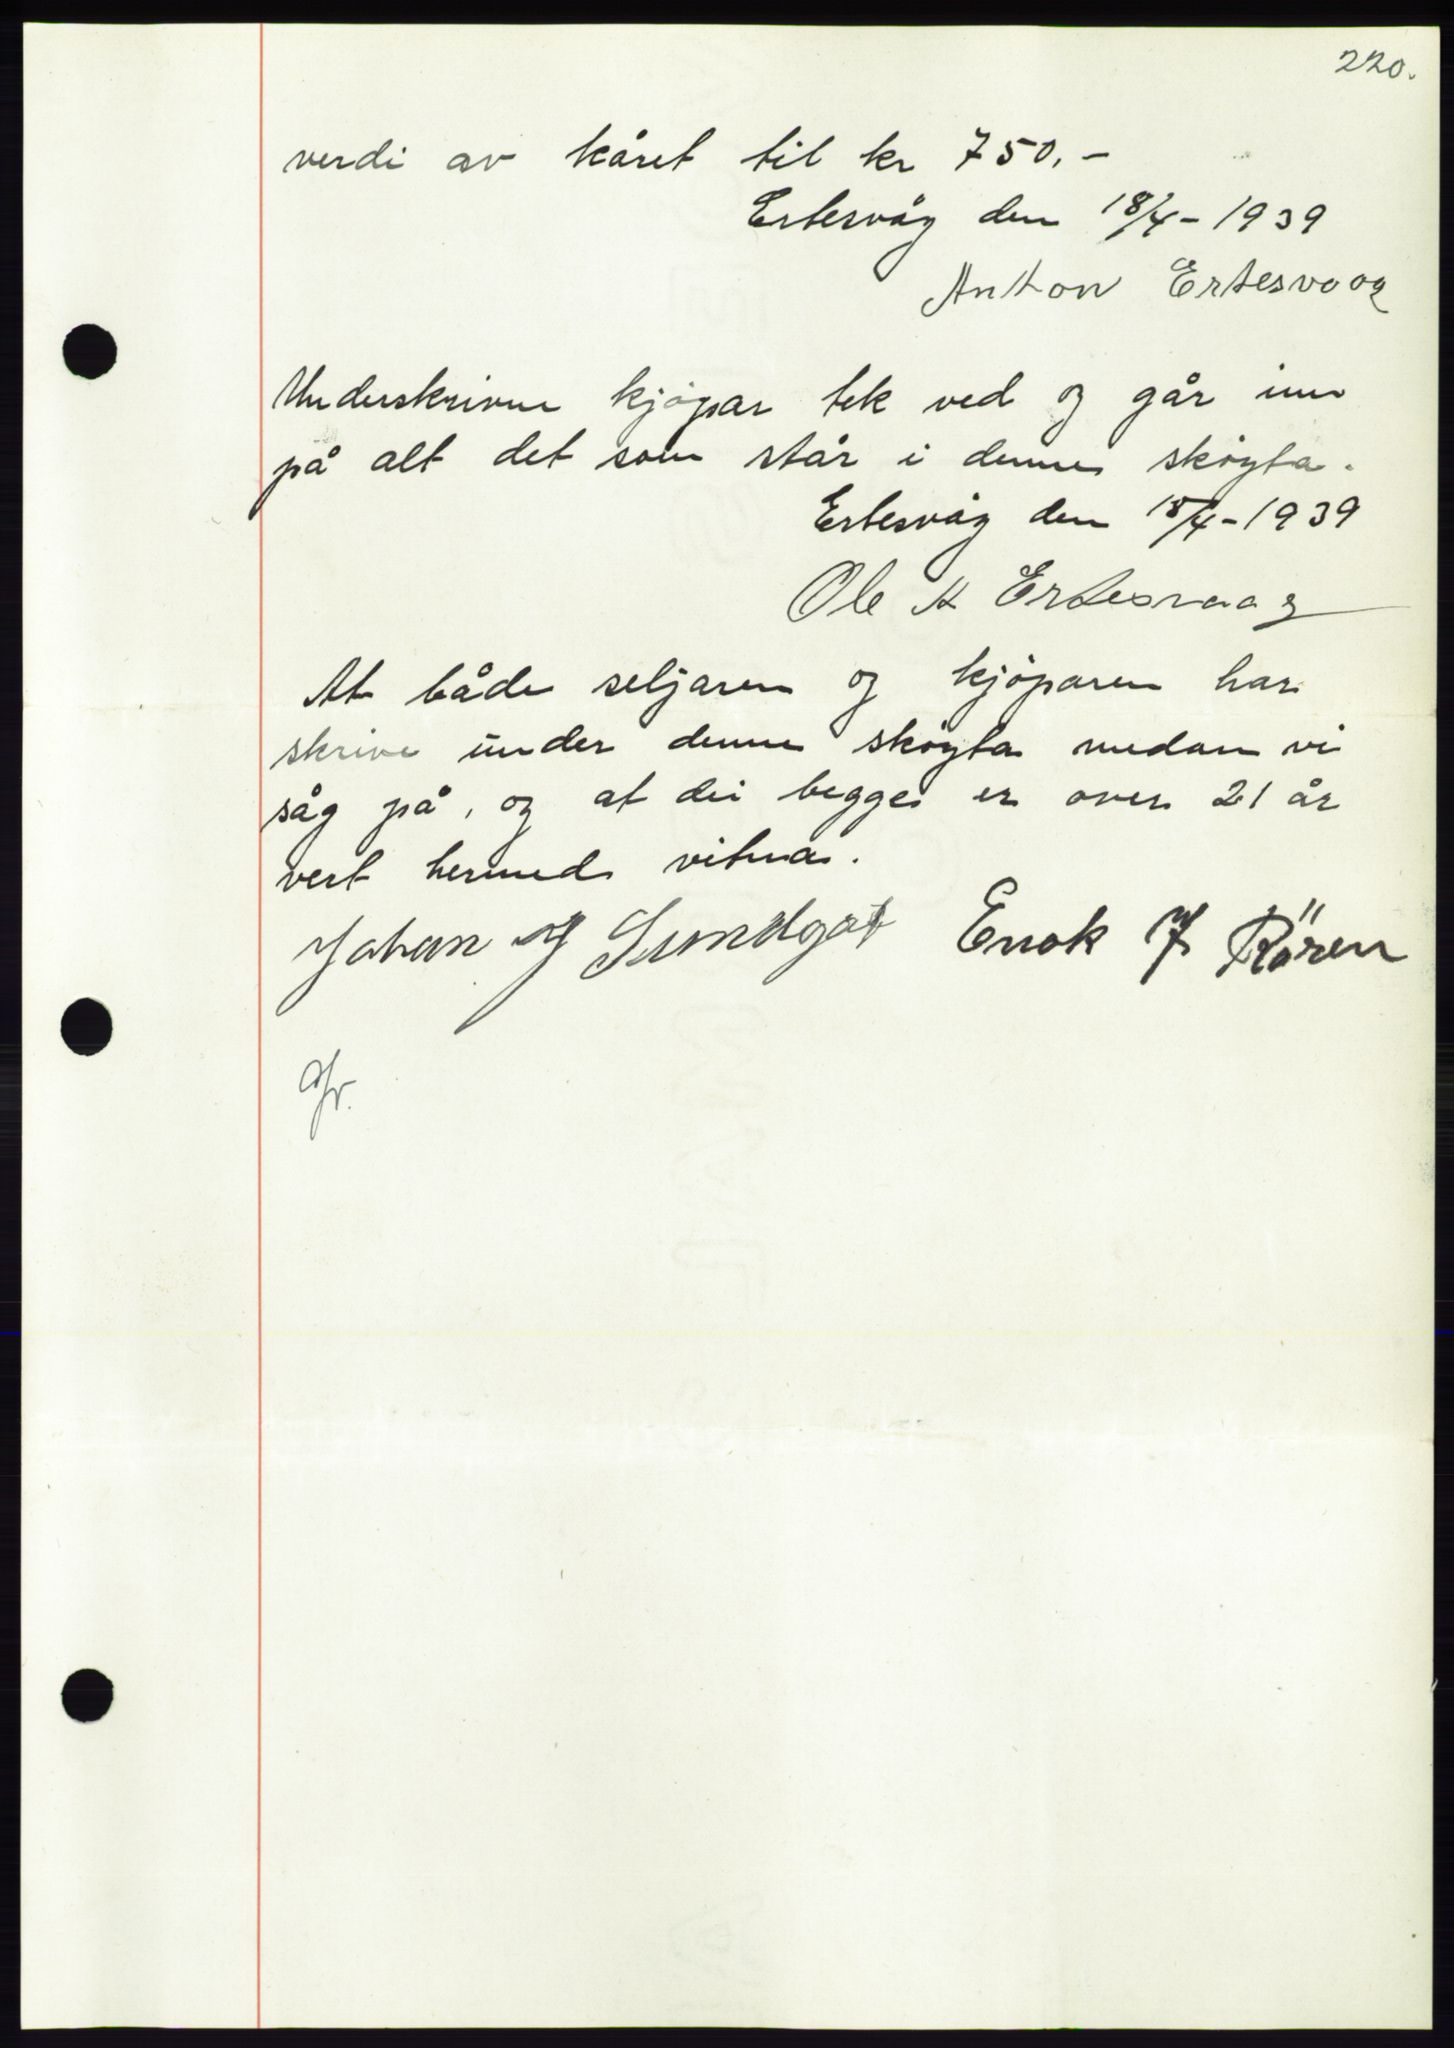 220.
verdi av kåret til kr 750.-
Ertesvåg den 18/4-1939
Anton Ertesvoog
Underskrivne kjøpar tek ved og går inn
på alt det som står i denne skøyta.
Ertesvåg den 18/4-1939
Ole A Ertesvaag
At både seljaren og kjøparen har
skrive under denne skøyta medan vi
såg på, og at dei begge er over 21 år
vert hermed vitna.
Johan J Sundgot Enok J Rören